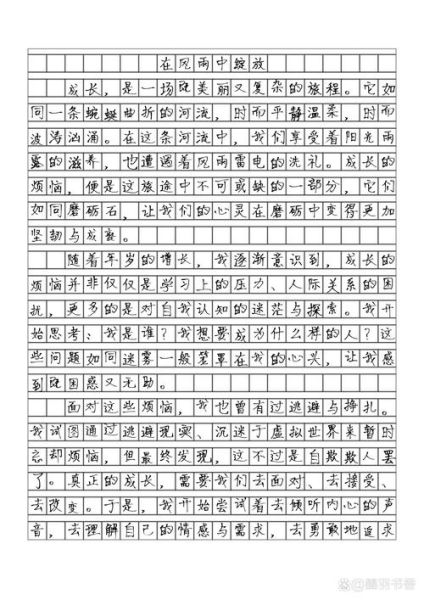 在风雨中绽放
成长，是一场既美丽又复杂的旅程。它如
同一条蜿蜒曲折的河流，时而平静温柔，时而
波涛汹涌。在这条河流中，我们享受着阳光雨
露的滋养，也遭遇着风雨雷电的洗礼。成长的
烦恼，便是这旅途中不可或缺的一部分，它们
如同磨砺石，让我们的心灵在磨砺中变得更加
坚韧与成熟。
随着年岁的增长，我逐渐意识到，成长的
烦恼并非仅仅是学习上的压力、人际关系的困
扰，更多的是对自我认知的迷茫与探索。我开
始思考：我是谁？我想要成为什么样的人？这
些问题如同迷雾一般笼罩在我的心头，让我感
到既困惑又无助。
面对这些烦恼，我也曾有过逃避与挣扎。
我试图通过逃避现实、沉迷于虚拟世界来暂时
忘却烦恼，但最终发现，这不过是自欺欺人罢
了。真正的成长，需要我们去面对、去接受、
去改变。于是，我开始尝试着去倾听内心的声
音，去理解自己的情感与需求，去勇敢地追求